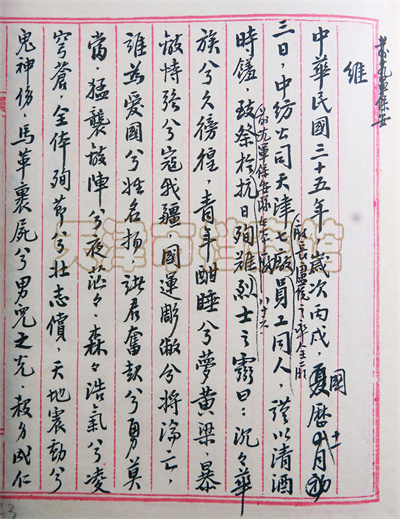 維
中華民國三十五年歲次丙戌，夏曆
三日，中紡公司天津七廠員工同人 謹以清酒
時饈，致祭於抗日殉難烈士之靈曰：沉々華
族兮久徬徨，青年酣睡兮夢黃粱，暴
敵恃強兮寇我疆 國運彫敝兮將淪亡，
誰為愛國兮姓名揚 諸君奮起兮勇莫
當 猛襲敵陣兮夜茫々，森々浩氣兮凌
穹蒼，全体殉節兮壯志償，天地震動兮
鬼神傷，馬革裹屍兮男兒之光，殺身成仁
天津市檔案館